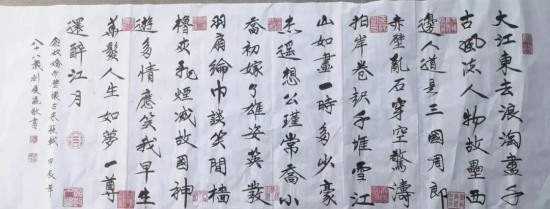 大江東去浪淘盡千
古風流人物故壘西
邊人道是三國周郎
赤壁亂石穿空驚濤
拍岸卷起千堆雪江
山如畫一時多少豪
杰遙想公瑾當年小
喬初嫁了雄姿英發
羽扇綸巾談笑間檣
櫓灰飛煙滅故國神
遊多情應笑我早生
華髮人生如夢一尊
還酹江月
念奴嬌赤壁懷古宋蘇軾 甲辰年
八十八歲劉書